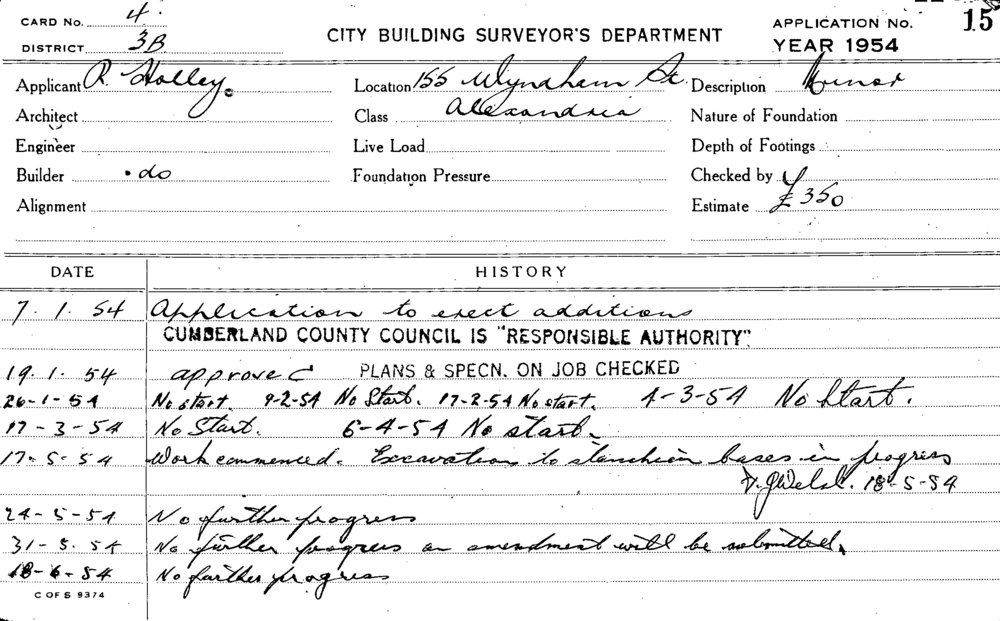 CARD No. 4.
DISTRICT 3B
CITY BUILDING SURVEYOR'S DEPARTMENT
APPLICATION No. 15
YEAR 1954
Applicant R. Holley.
Location 155 Wyndham St.
Description Minor
Architect
Class Alexandria
Nature of Foundation
Engineer
Live Load
Depth of Footings
Builder do
Foundation Pressure
Checked by
Alignment
Estimate £350
DATE HISTORY
7. 1. 54 Application to erect additions
CUMBERLAND COUNTY COUNCIL IS "RESPONSIBLE AUTHORITY"
19. 1. 54 approved PLANS & SPECN. ON JOB CHECKED
26-1-54 No start. 9-2-54 No Start. 17-2-54 No start. 4-3-54 No Start.
17-3-54 No Start. 6-4-54 No start.
17-5-54 Work commenced. Excavations to stanchion bases in progress
18-5-54
24-5-54 No further progress
31-5.54 No further progress an amendment will be submitted.
18-6-54 No further progress
C OF S 9374